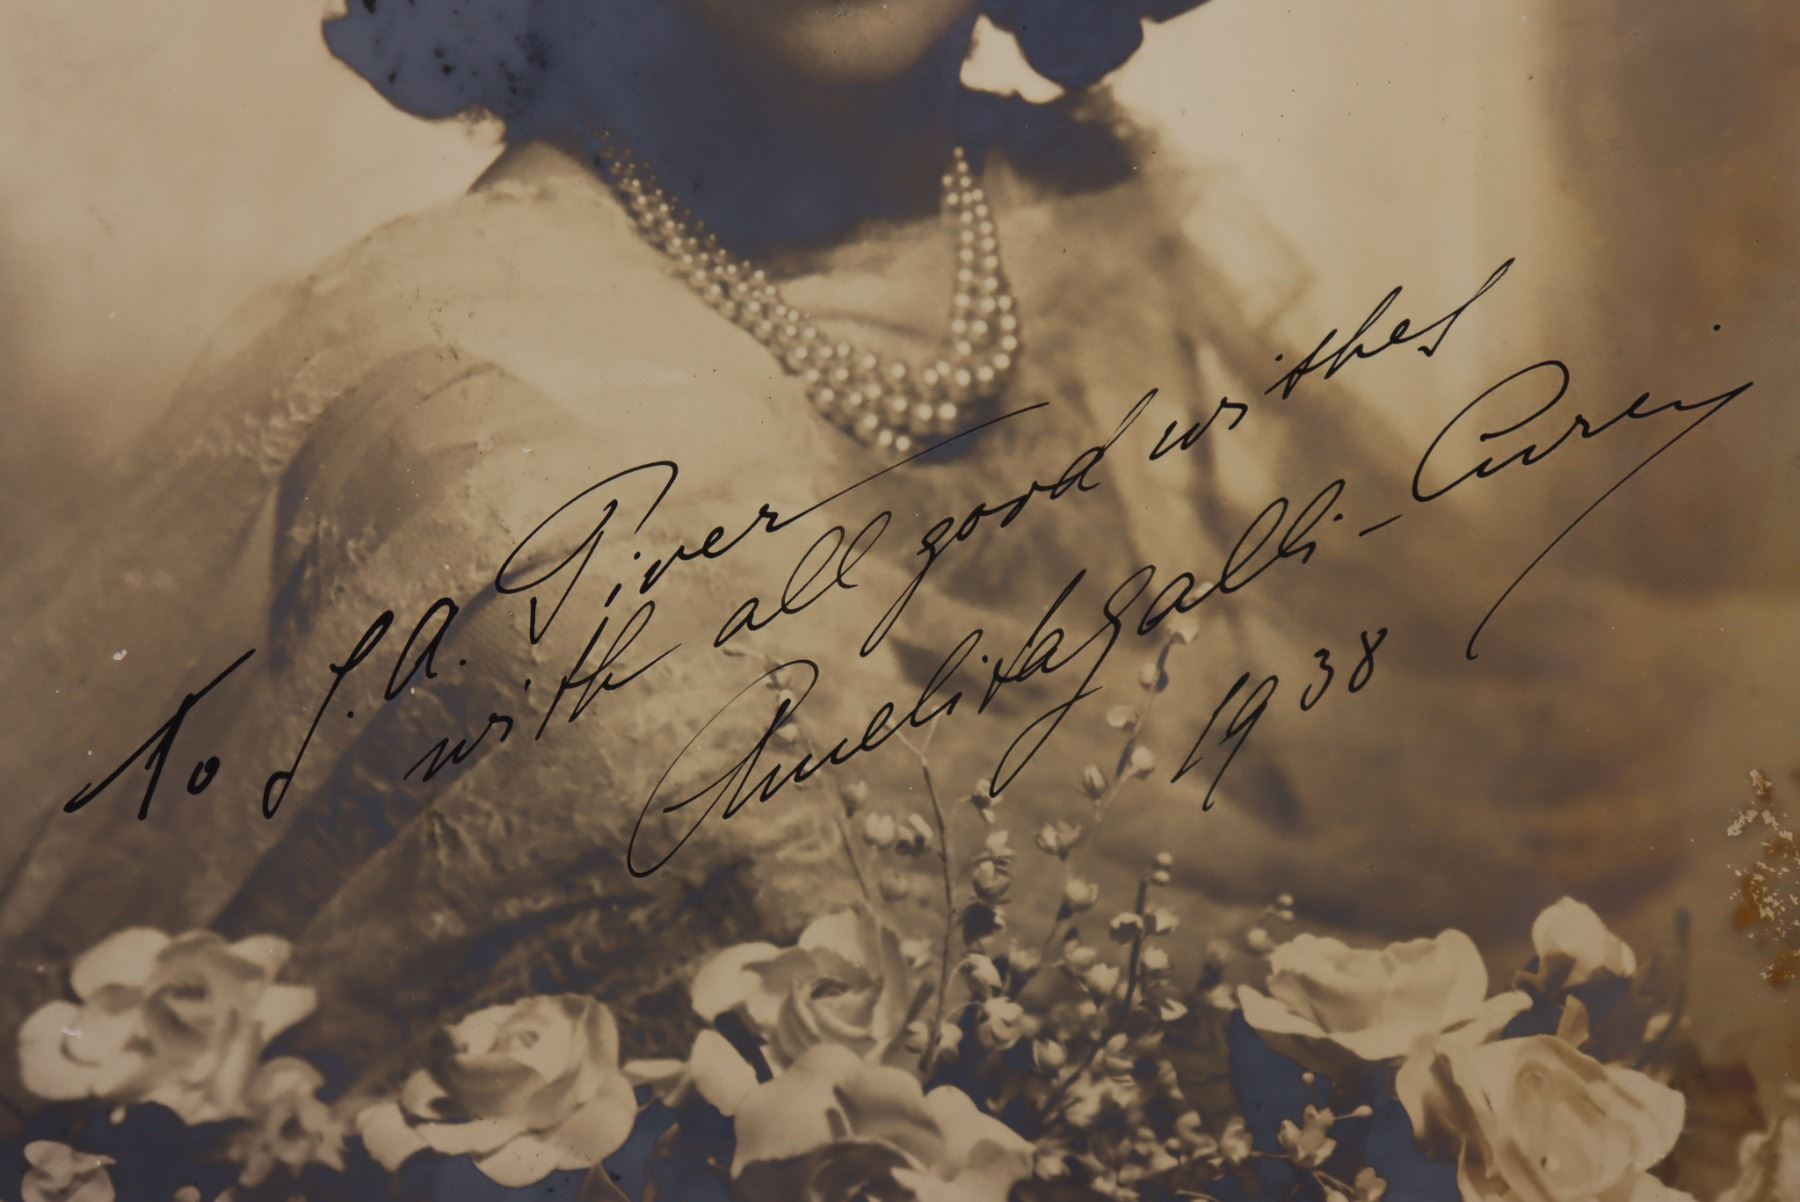 To L. A. Piver
with all good wishes
Amelita Galli-Curci
1938